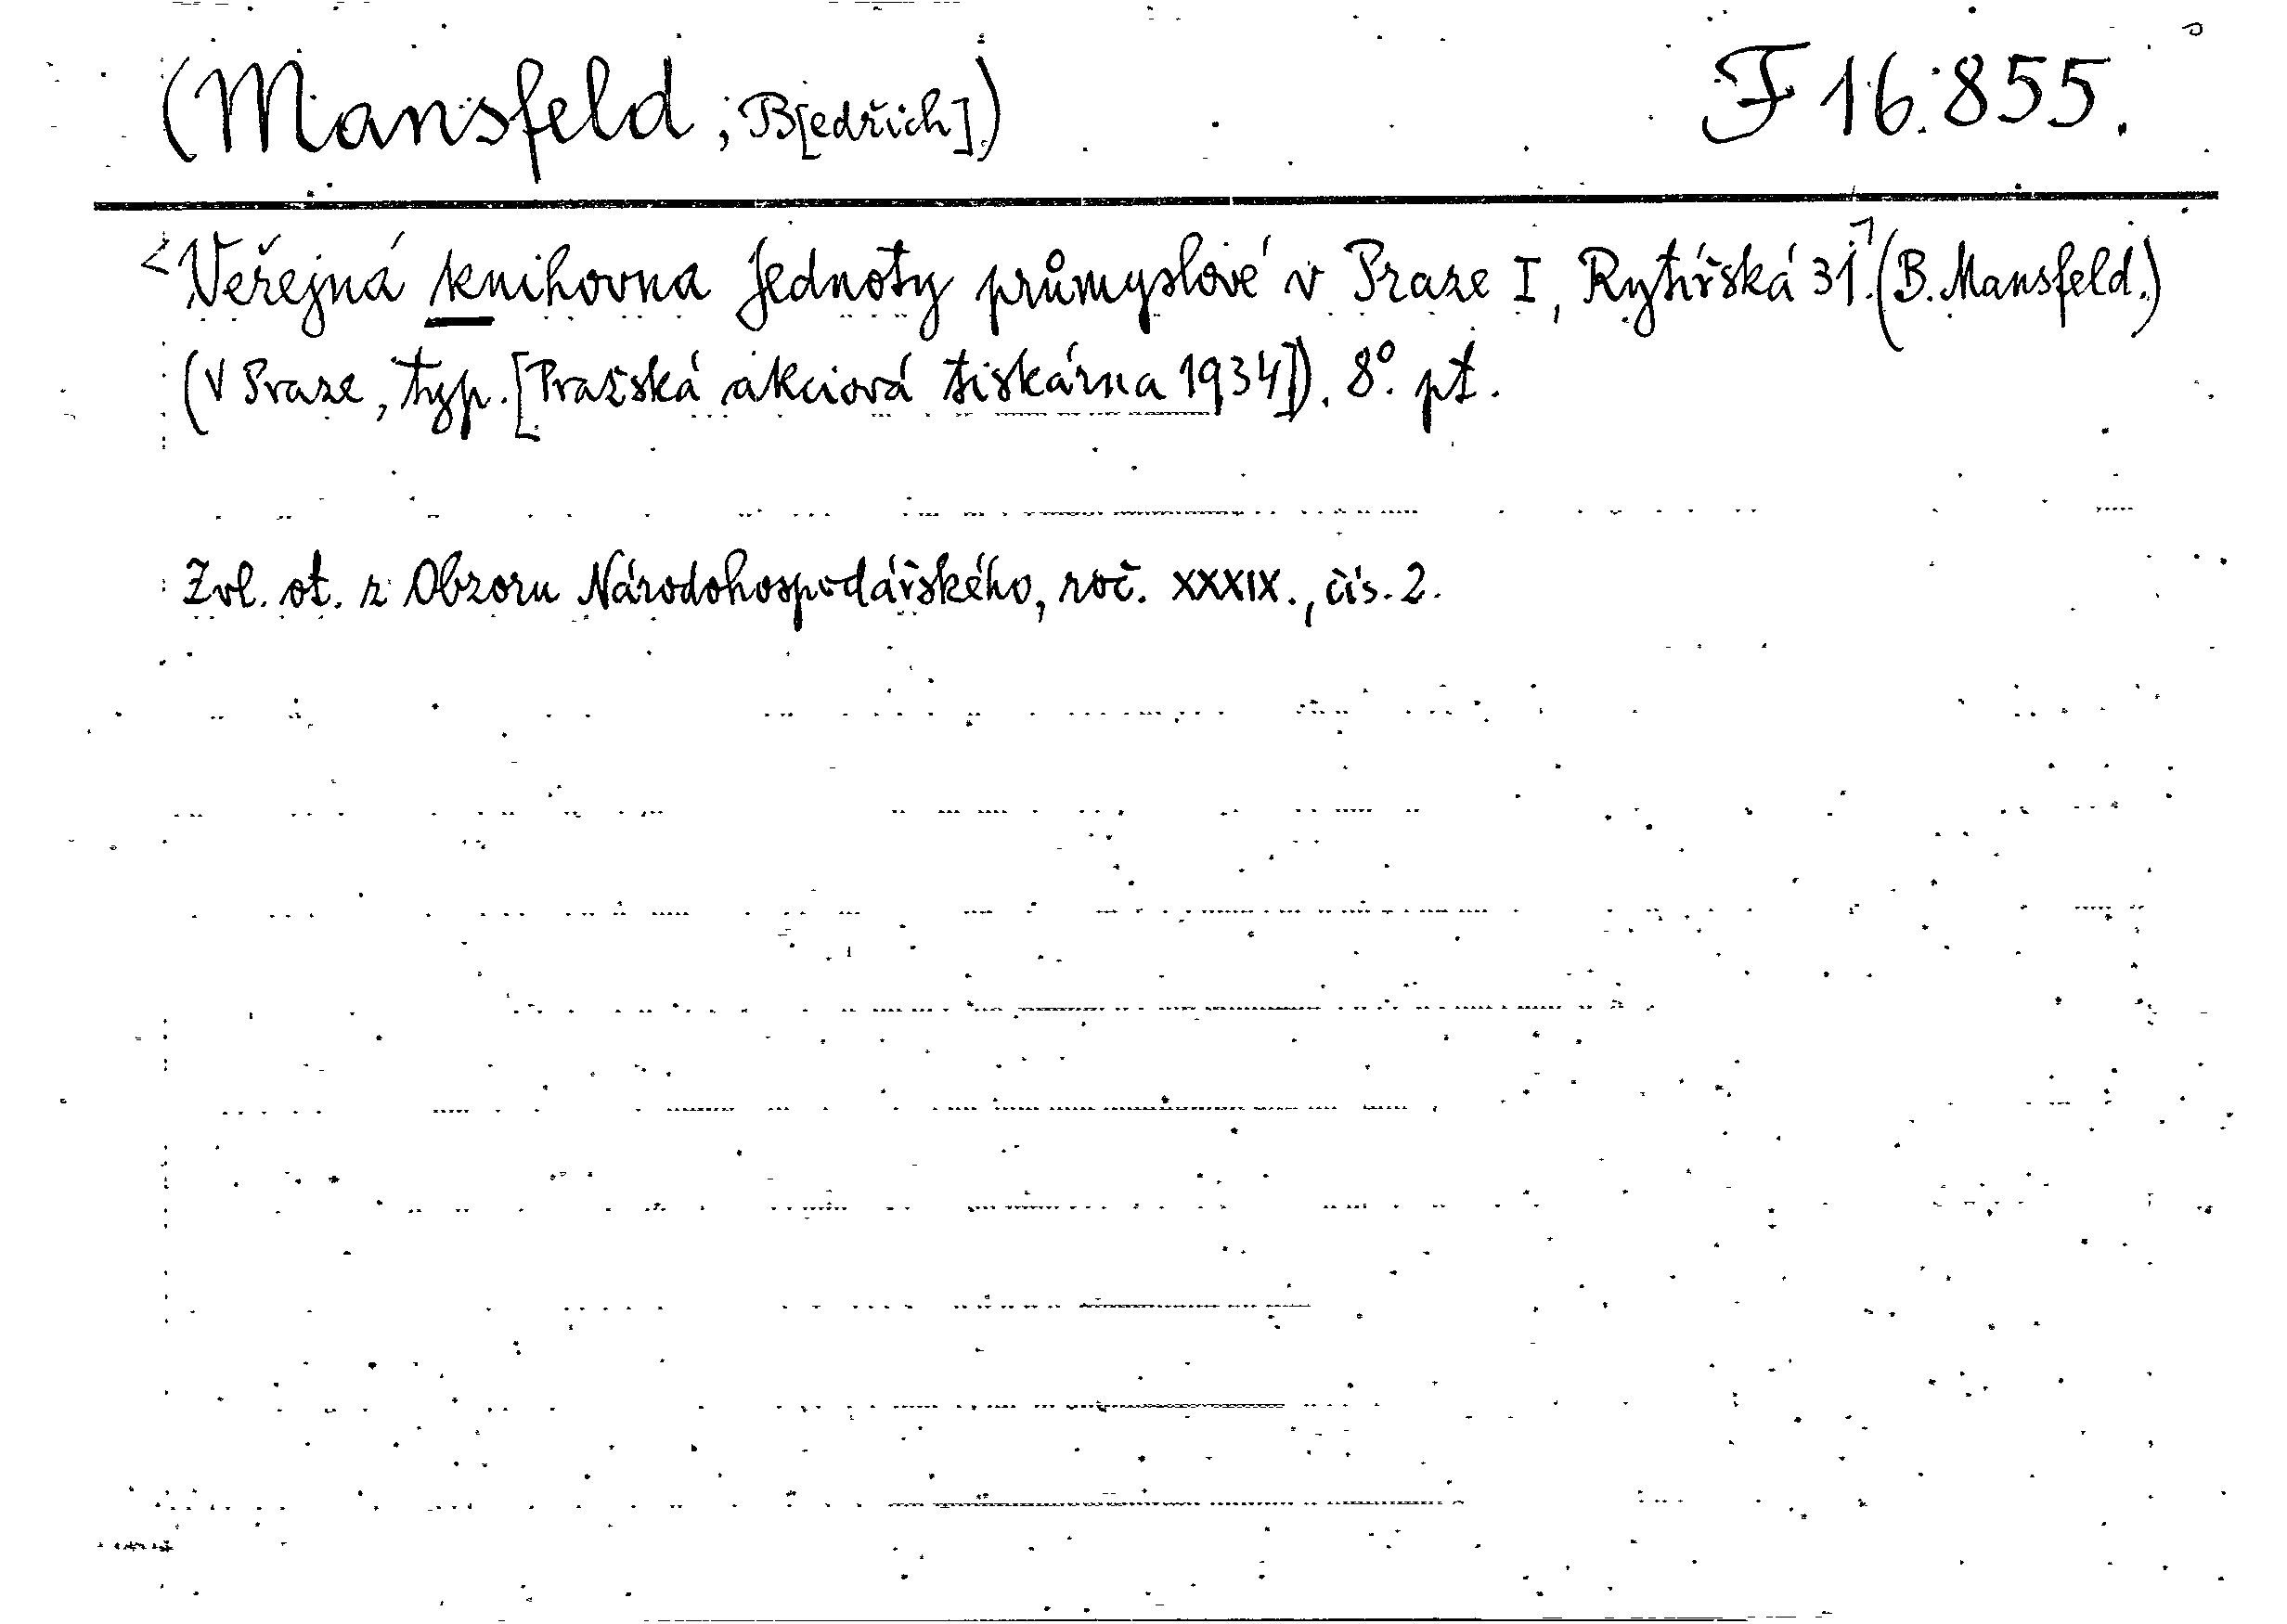 (Mansfeld, B[edřich]) F 16.855.
<Veřejná knihovna Jednoty průmyslové v Praze I, Rytířská 31.> (B. Mansfeld.)
(V Praze, typ. [Pražská akciová tiskárna 1934]). 8°. pt.
Zvl. ot. z Obzoru Národohospodářského, roč. XXXIX., čís. 2.